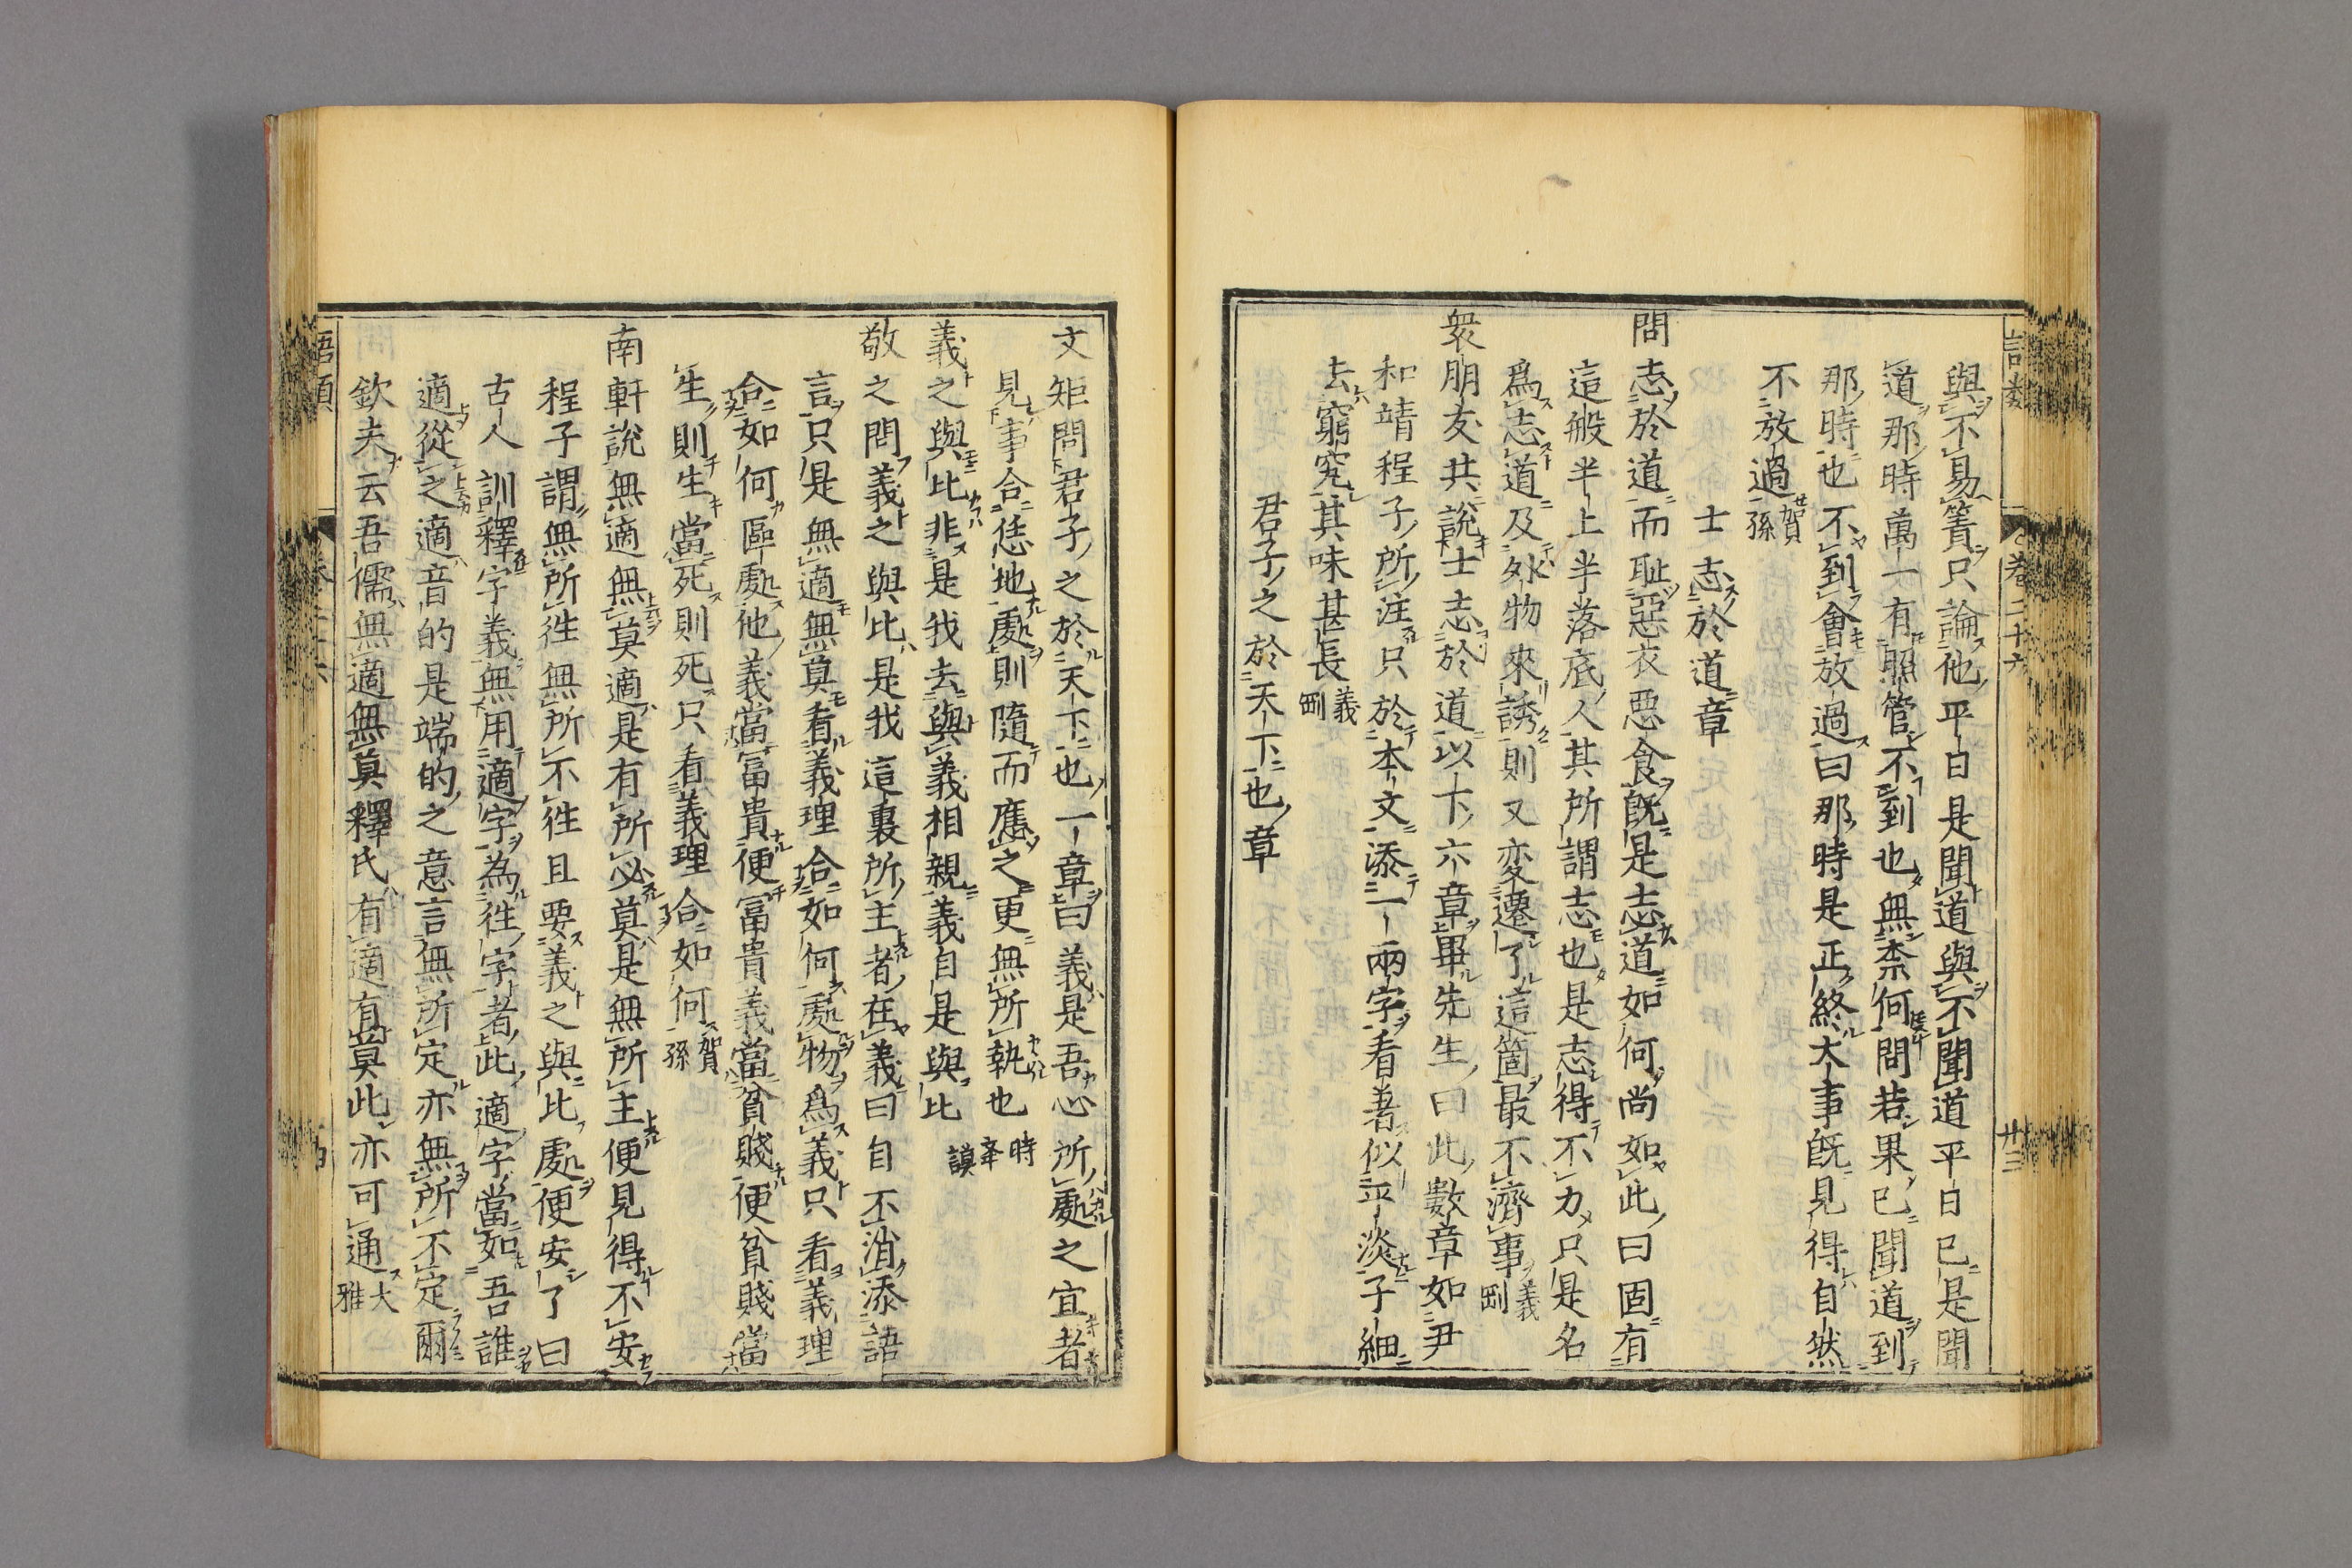 與不易簀只論他平日是聞道與不聞道平日已是聞
道那時萬一有照管不到也無柰何問若果已聞道到
那時也不到會放過曰那時是正終大事旣見得自然
不放過賀孫
士志於道章
問志於道而恥惡衣惡食旣是志道如何尚如此曰固有
這般半上半落底人其所謂志也是志得不力只是名
爲志道及外物來誘則又変遷了這箇最不濟事義剛
衆朋友共說士志於道以下六章畢先生曰此數章如尹
和靖程子所注只於本文添一兩字看著似平淡子細
去窮究其味甚長義剛
君子之於天下也章
文矩問君子之於天下也一章曰義是吾心所處之宜者
見事合恁地處則隨而應之更無所執也時舉 謨
義之與比非是我去與義相親義自是與比
敬之問義之與比是我這裏所主者在義曰自不消添語
言只是無適無莫看義理合如何處物爲義只看義理
合如何區處他義當富貴便富貴義當貧賤便貧賤當
生則生當死則死只看義理合如何賀孫
南軒說無適無莫適是有所必莫是無所主便見得不安
程子謂無所徃無所不徃且要義之與比處便安了曰
古人訓釋字義無用適字為徃字者此適字當如吾誰
適從之適音的是端的之意言無所定亦無所不定爾
欽夫云吾儒無適無莫釋氏有適有莫此亦可通大雅
卷二十六
卅三